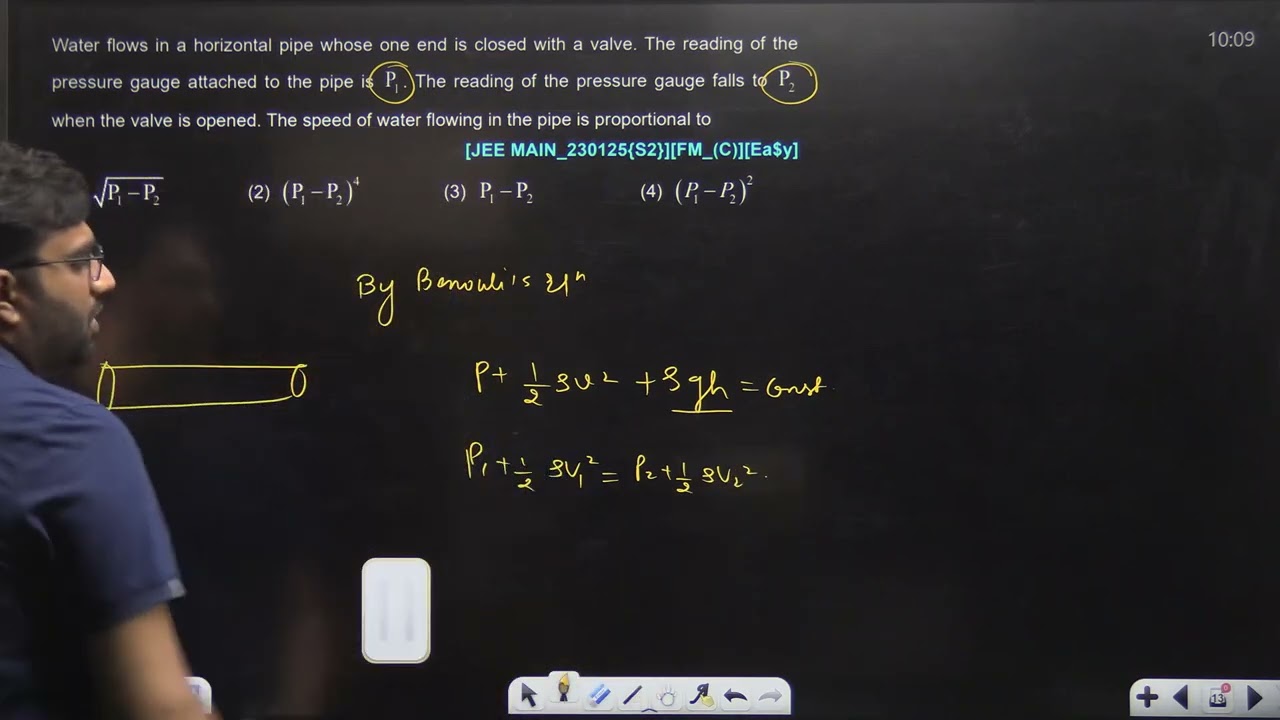 Water flows in a horizontal pipe whose one end is closed with a valve. The reading of the
10:09
pressure gauge attached to the pipe is P₁. The reading of the pressure gauge falls to P₂
when the valve is opened. The speed of water flowing in the pipe is proportional to
[JEE MAIN_230125{S2}][FM_(C)][Ea$y]
√(P₁ – P₂) (2) (P₁ – P₂)⁴ (3) P₁ – P₂ (4) (P₁ – P₂)²
By
P + 1/2 ρv² + ρgh = Const.
P₁ + 1/2 ρv₁² = P₂ + 1/2 ρv₂².
13